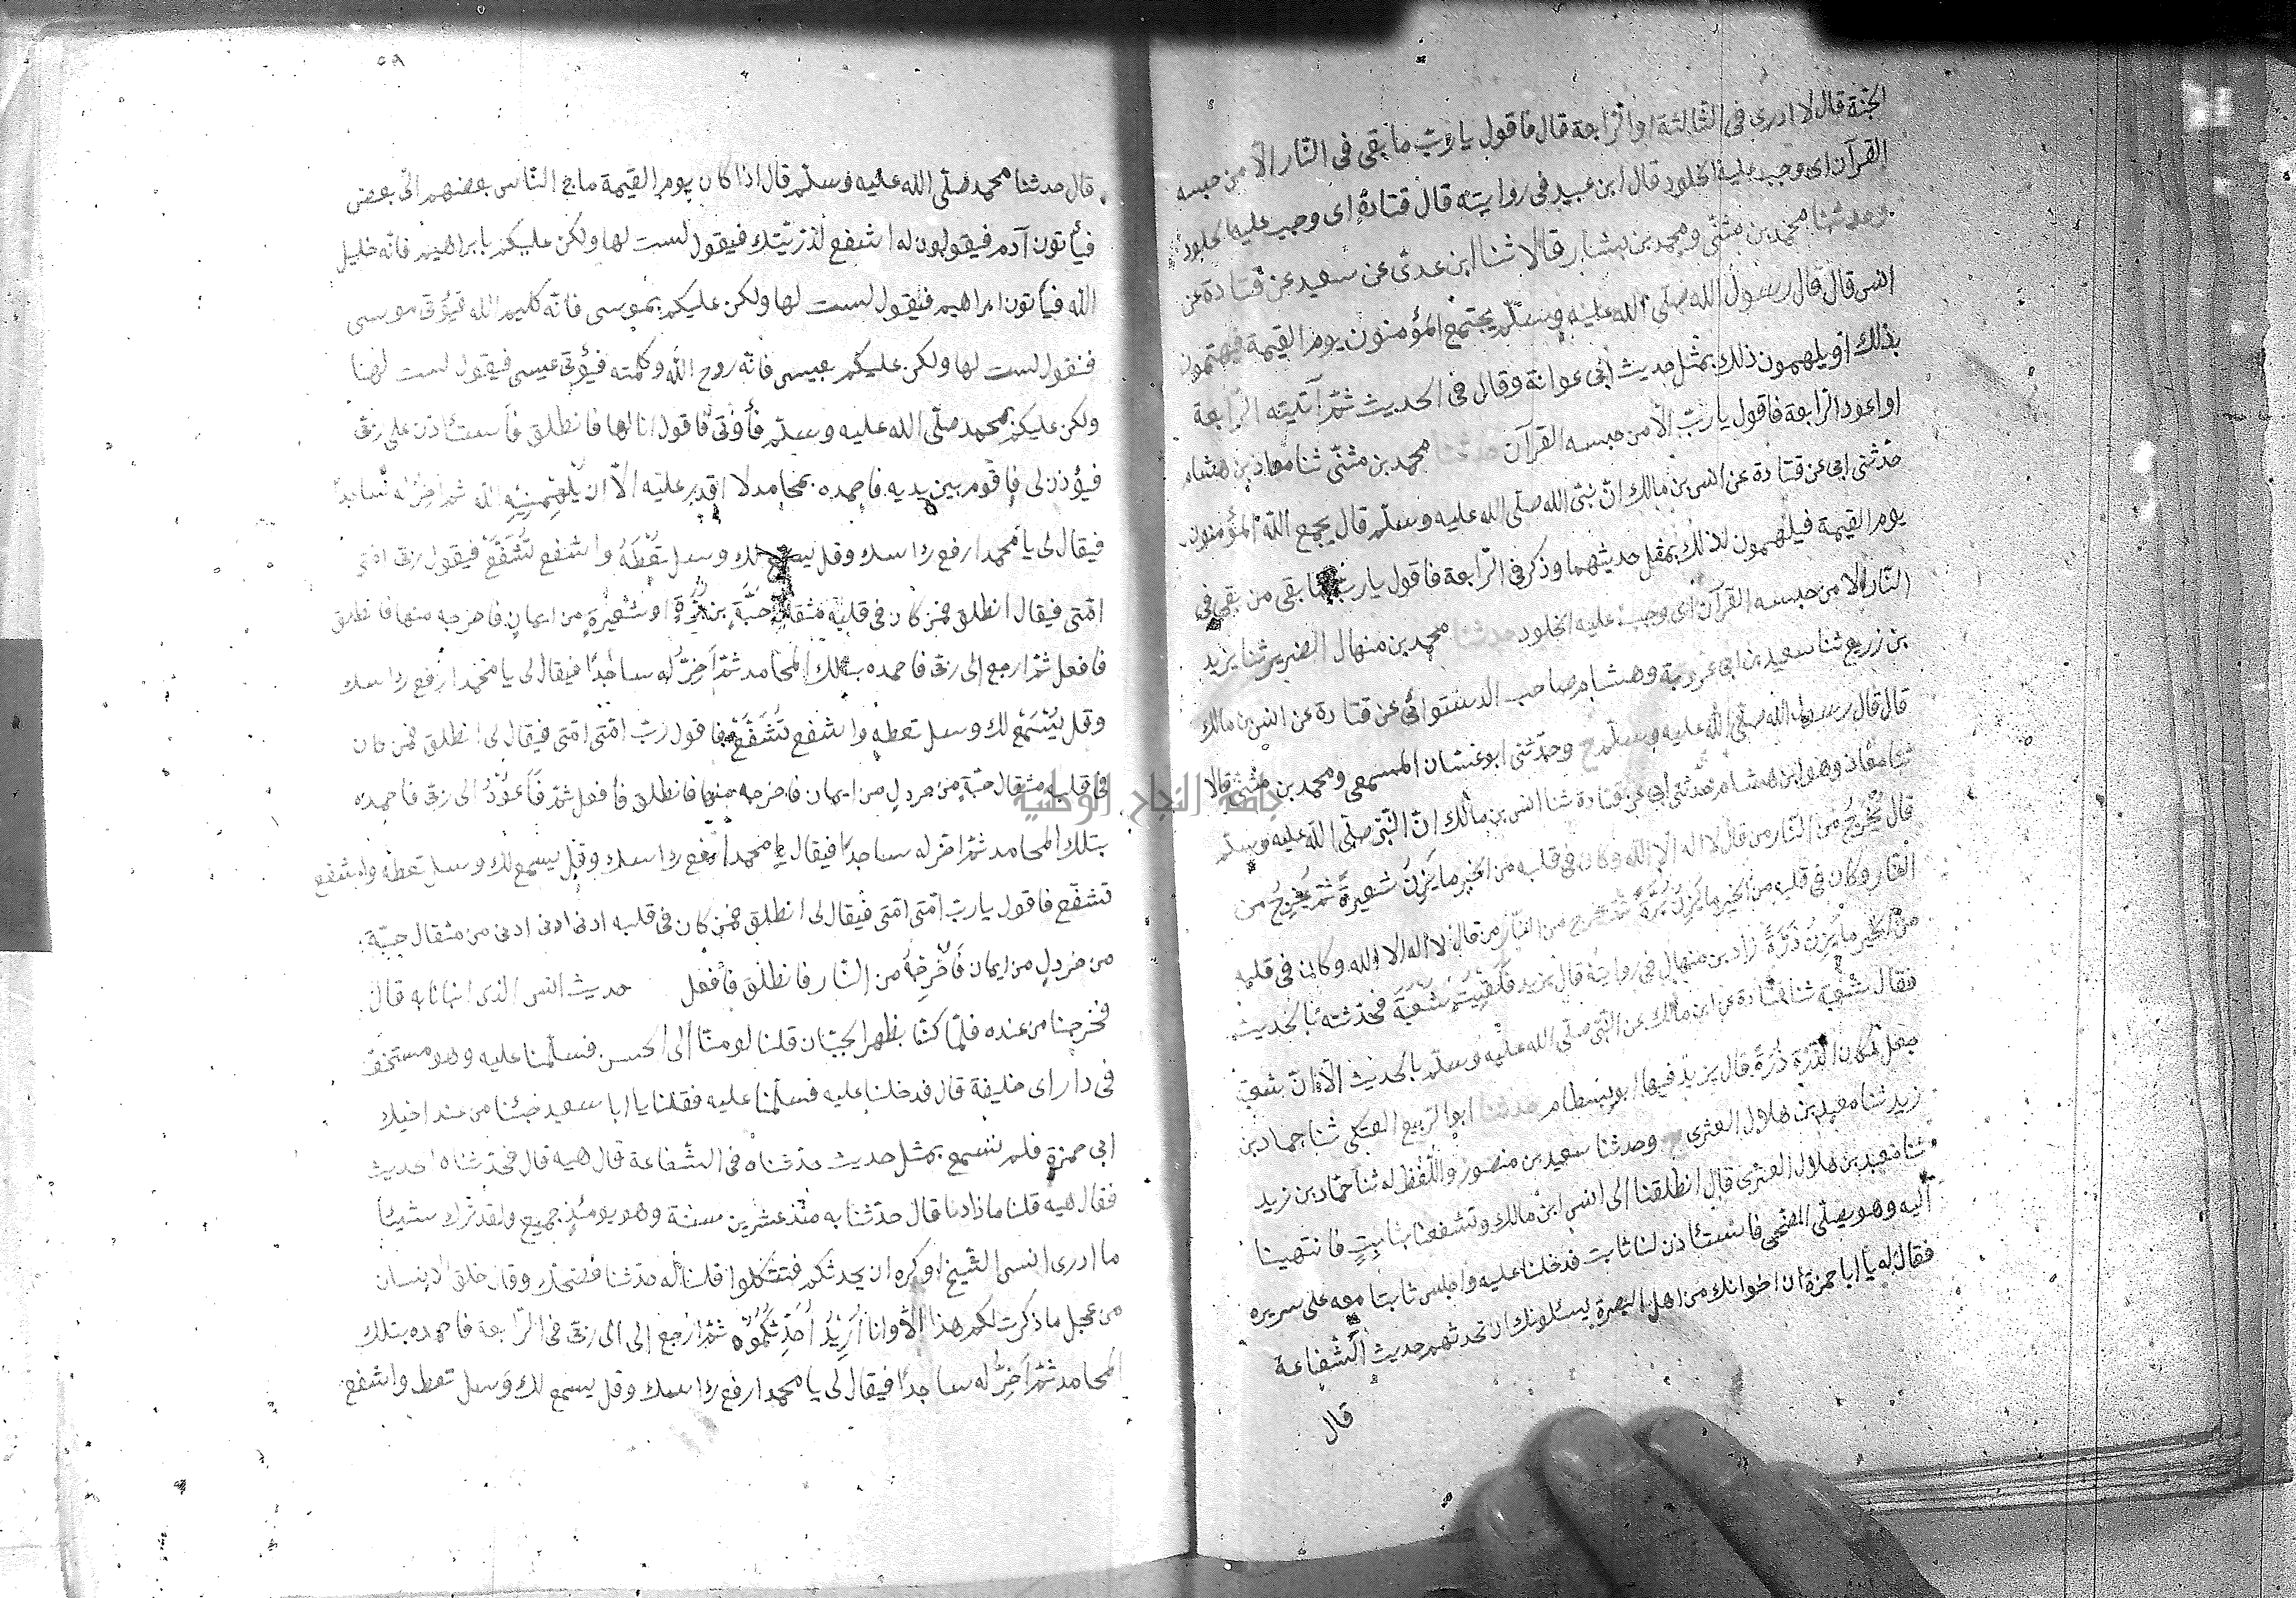 الجنة قال لا ادرى فى الثالثة او الرابعة قال فاقول يا ربّ ما بقى فى النّار الا من حبسه
القرآن اى وجب عليه الخلود قال ابن عبيد فى روايته قال قتادة اى وجب عليه الخلود
وحدثنا محمد بن مثنّى ومحمد بن بشار قالا ثنا ابن عدى عن سعيد عن قتادة عن
انس قال قال رسول الله صلّى الله عليه وسلّم يجتمع المؤمنون يوم القيمة فيهتمون
بذلك او يلهمون ذلك بمثل حديث ابى عوانة وقال فى الحديث ثمّ آتيته الرّابعة
او اعود الرابعة فاقول يا ربّ الا من حبسه القرآن حدثنا محمد بن مثنّى ثنا معاذ بن هشام
حدّثنى ابى عن قتادة عن انس بن مالك انّ نبىّ الله صلّى الله عليه وسلّم قال يجمع الله المؤمنون
يوم القيمة فيلهمون لذلك بمثل حديثهما وذكر فى الرّابعة فاقول يا ربّ ما بقى من بقى فى
النّار الا من حبسه القرآن اى وجب عليه الخلود حدثنا محمد بن منهال الضرير ثنا يزيد
بن زريع ثنا سعيد بن ابى عروبة وهشام صاحب الدستوائى عن قتادة عن انس بن مالك
قال قال رسول الله صلّى الله عليه وسلّم ح وحدّثنى ابو غسّان المسمعى ومحمد بن مثنّى قالا
ثنا معاذ وهو ابن هشام حدّثنى ابى عن قتادة ثنا انس بن مالك انّ النّبىّ صلّى الله عليه وسلّم
قال يُخرجُ من النّار من قال لا اله الا الله وكان فى قلبه من الخير ما يَزِنُ شعيرةً ثمّ يُخرجُ من
النّار وكان فى قلبه من الخير ما يَزِنُ بُرّةً ثم يخرج من النّار من قال لا اله الا الله وكان فى قلبه
من الخير ما يَزِنُ ذَرّةً زاد بن منهال فى روايته قال يزيد فلقيتُ شُعبَةَ فحدّثته بالحديث
فقال شعبة ثنا قتادة عن ابن مالك عن النّبىّ صلّى الله عليه وسلّم بالحديث الا انّ شعبة
جعل مكان الذرّة ذُرَةً قال يزيد فيها ابو بسطام حدثنا ابو الرّبيع العتكى ثنا حماد بن
زيد ثنا معبد بن هلال العنزى ح وحدثنا سعيد بن منصور واللّفظ له ثنا حمّاد بن زيد
ثنا معبد بن هلال العنزى قال انطلقنا الى انس ابن مالك وتشفعنا بثابتٍ فانتهينا
اليه وهو يصلّى الضّحى فاستئاذن لنا ثابت فدخلنا عليه واجلس ثابتا معه على سريره
فقال له يا ابا حمزة ان اخوانك من اهل البصرة يسئلونك ان تحدثهم حديث الشّفاعة
قال
٥٨
قال حدثنا محمد صلّى الله عليه وسلّم قال اذا كان يوم القيمة ماج النّاس بعضهم الى بعض
فيأتون آدم فيقولون له اشفع لذرّيتك فيقول لست لها ولكن عليكم بابراهيم فانّه خليل
الله فيأتون ابراهيم فيقول لست لها ولكن عليكم بموسى فانّه كليم الله فيؤتى موسى
فيقول لست لها ولكن عليكم بعيسى فانّه روح الله وكلمته فيؤتى عيسى فيقول لست لها
ولكن عليكم بمحمد صلّى الله عليه وسلّم فأوتى فاقول انا لها فانطلق فأستئاذن على ربّى
فيؤذن لى فاقوم بين يديه فاحمده بمحامد لا اقدر عليه الا ان يُلهِمنِيهِ الله ثم اخرّ له ساجداً
فيقال لى يا محمد ارفع رأسك وقل يسمع لك وسل تعطه واشفع تُشَفّع فيقول ربّى امّتى
امّتى فيقال انطلق فمن كان فى قلبه مثقال حبّةٍ من بُرّةٍ او شعيرةٍ من ايمان فاخرجه منها فانطلق
فافعل ثمّ ارجع الى ربّى فاحمده بتلك المحامد ثمّ اخرّ له ساجدًا فيقال لى يا محمد ارفع رأسك
وقل يُسْمَع لك وسل تعطه واشفع تُشَفّع فاقول ربّ امّتى امّتى فيقال لى انطلق فمن كان
فى قلبه مثقال حبّةٍ من خردلٍ من ايمان فاخرجه منها فانطلق فأفعل ثمّ فأعُودُ الى ربّى فاحمده
بتلك المحامد ثمّ اخرّ له ساجدًا فيقال يا محمد ارفع رأسك وقل يسمع لك وسل تعطه واشفع
تشفّع فاقول يا ربّ امّتى امّتى فيقال لى انطلق فمن كان فى قلبه ادنى ادنى ادنى من مثقال حبّة
من خردلٍ من ايمان فأخرِجهُ من النّار فانطلق فأفعل حديث انس الذى انبانا به قال
فخرجنا من عنده فلمّا كنّا بظهر الجبّان قلنا لو ملنا الى الحسن فسلّمنا عليه وهو مستخف
فى دار ابى خليفة قال فدخلنا عليه فسلّمنا عليه فقلنا يا ابا سعيد جئنا من عند اخيك
ابى حمزة فلم نسمع بمثل حديث حدّثناه فى الشّفاعة قال هيه قال فحدّثناه الحديث
فقال هيه قلنا ما زادنا قال حدّثنا به منذ عشرين سنة وهو يومئذٍ جميع ولقد ترك شيئا
ما ادرى انسى الشّيخ او كره ان يحدثكم فتتّكلوا قلنا له حدّثنا فضحك وقال خلق الانسان
من عجل ما ذكرت لكم هذا الا وانا اُرِيدُ اُحَدِّثكموه ثمّ ارجع الى الى ربّى فى الرّابعة فاحمده بتلك
المحامد ثمّ اخرّ له ساجدًا فيقال لى يا محمد ارفع رأسك وقل يسمع لك وسل تعط واشفع
جامعة النجاح الوطنية